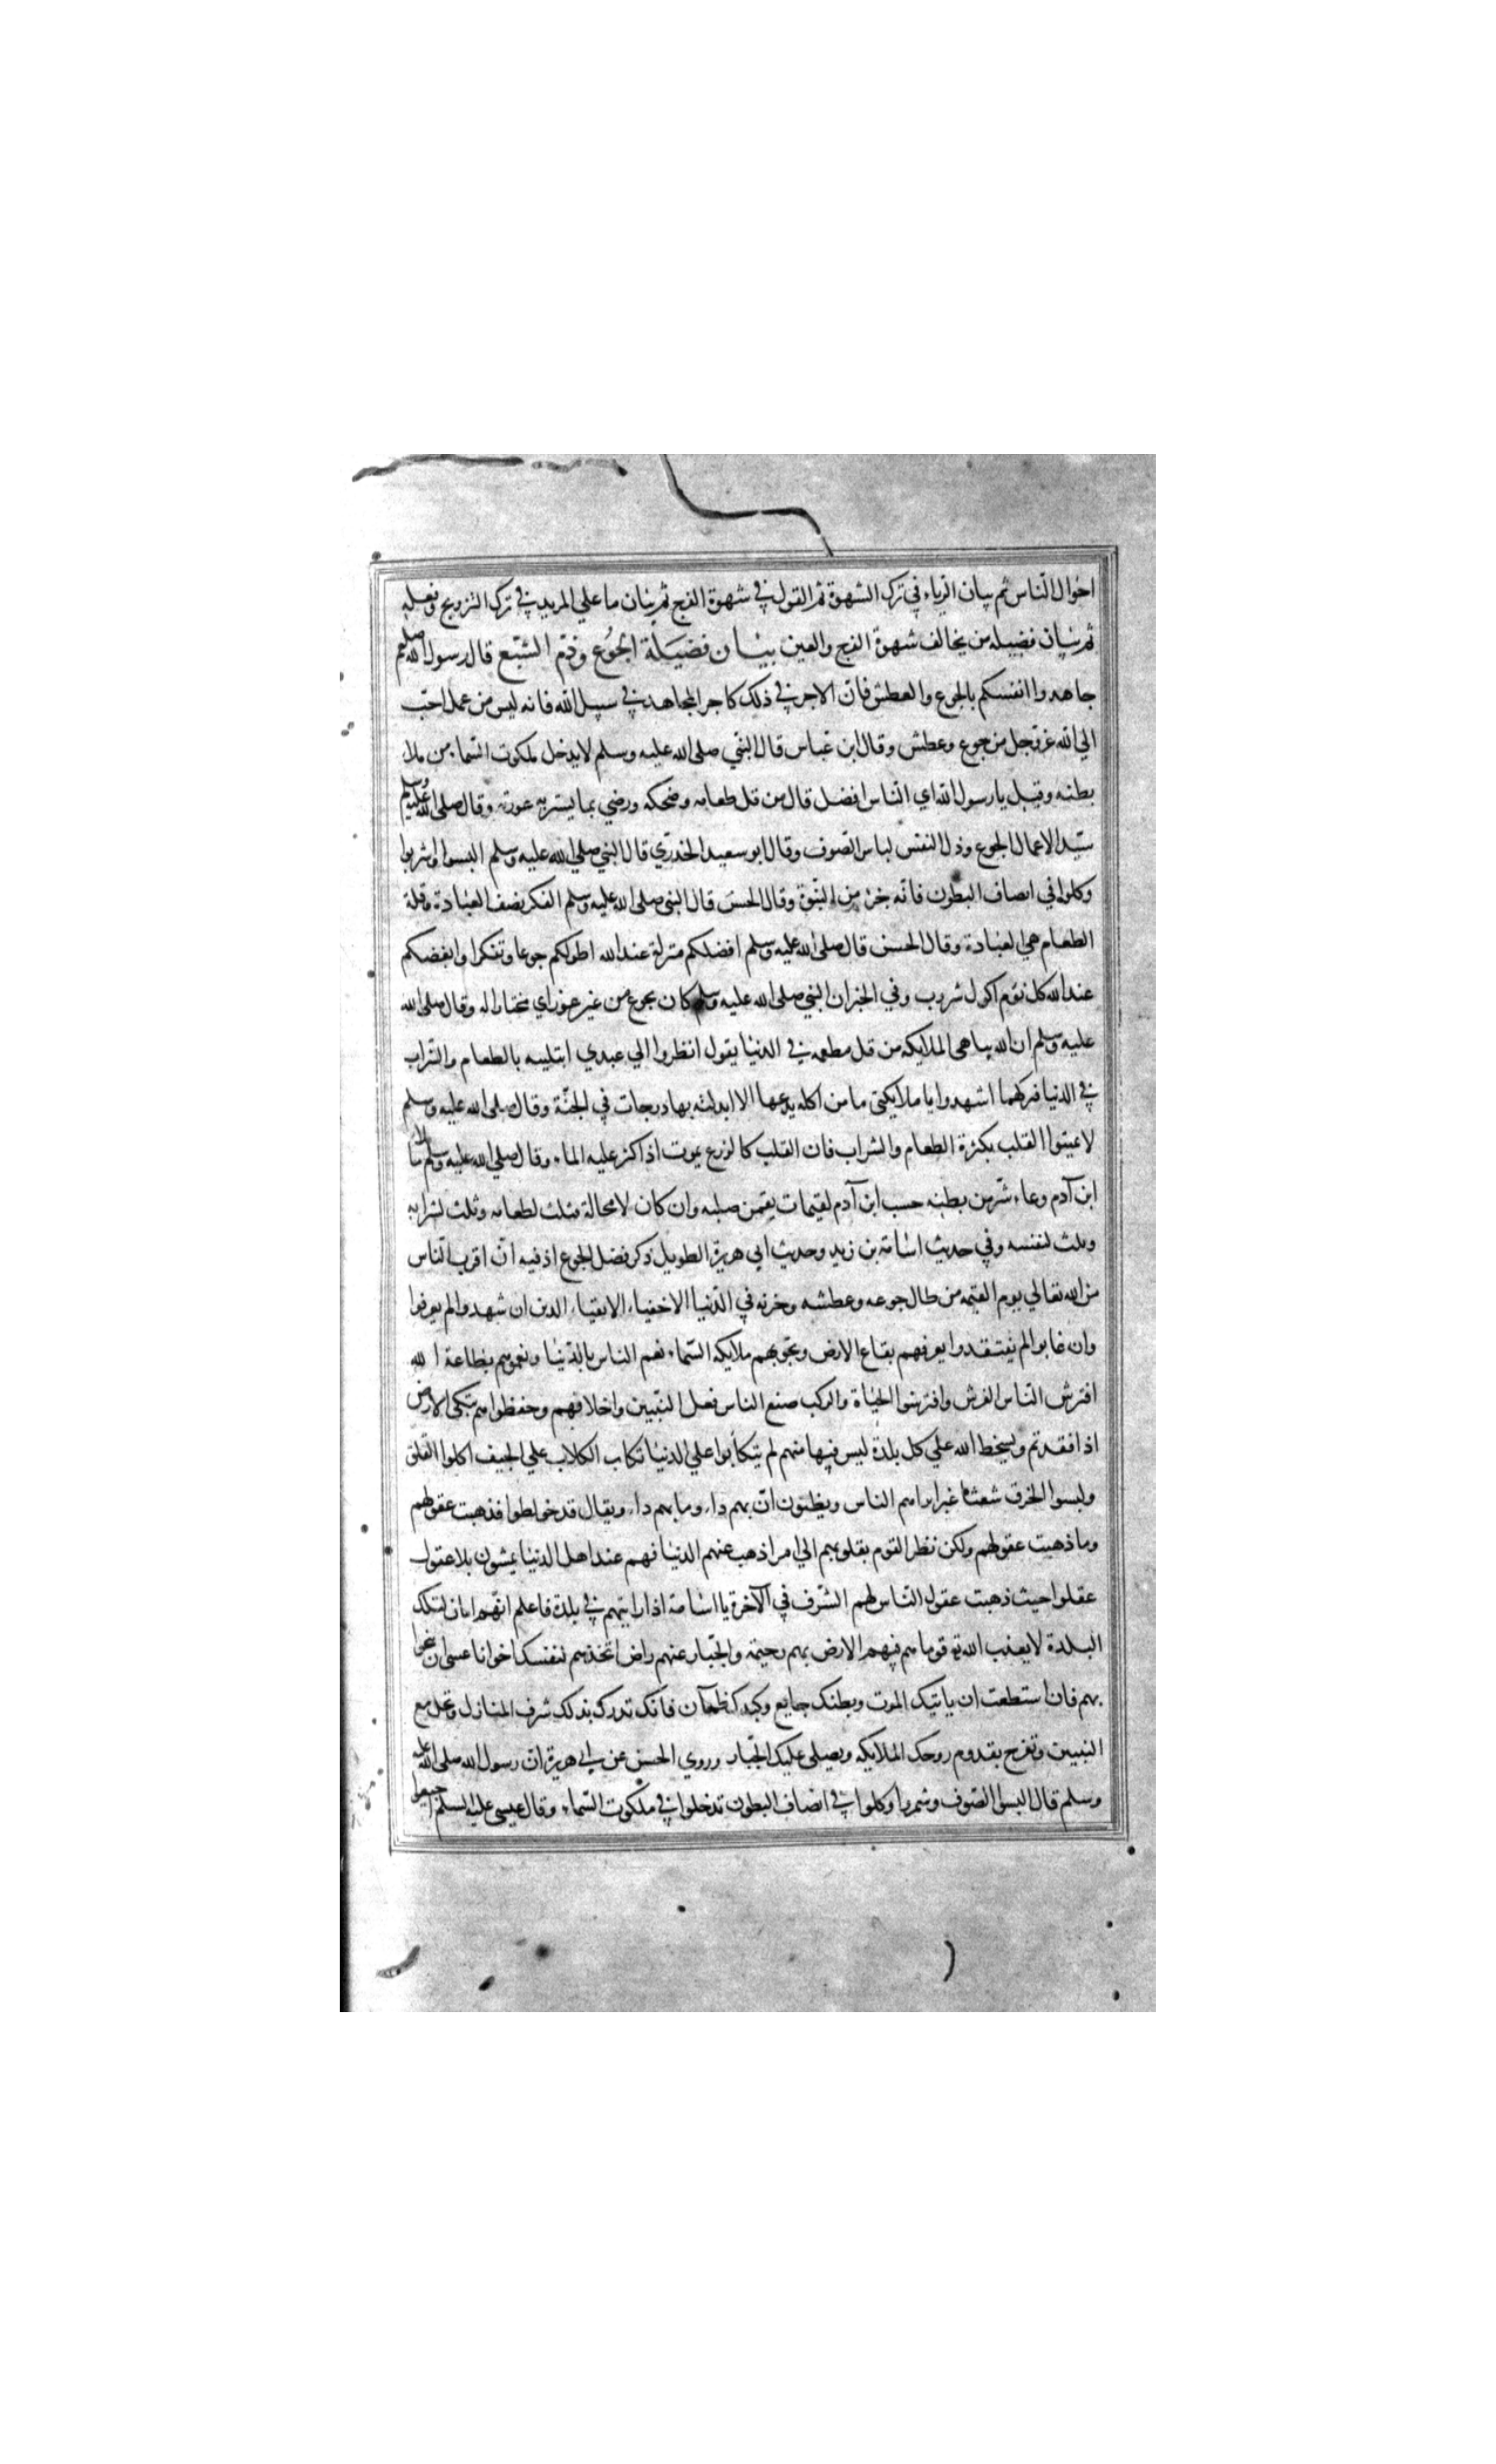 احوال الناس ثم بيان الرياء في ترك الشهوة ثم القول في شهوة الفرج ثم بيان ما علي المريد في ترك التزويج وفعله
ثم بيان فضيلة من يخالف شهوة الفرج والعين بيان فضيلة الجوع وذم الشبع قال رسول الله صلعم
جاهدوا انفسكم بالجوع والعطش فان الاجر في ذلك كاجر المجاهد في سبيل الله فانه ليس من عمل احب
الي الله عز وجل من جوع وعطش وقال ابن عباس قال النبي صلى الله عليه وسلم لا يدخل ملكوت السماء من ملا
بطنه وقيل يا رسول الله اي الناس افضل قال من قل طعامه وضحكه ورضي بما يستر به عورته وقال صلى الله عليه وسلم
سيد الاعمال الجوع وذل النفس لباس الصوف وقال ابو سعيد الخدري قال النبي صلي الله عليه وسلم البسوا واشربوا
وكلوا في انصاف البطون فانه جزء من النبوة وقال الحسن قال النبي صلى الله عليه وسلم الفكر نصف العبادة وقلة
الطعام هي العبادة وقال الحسن قال صلى الله عليه وسلم افضلكم منزلة عند الله اطولكم جوعا وتفكرا وابغضكم
عند الله كل نؤم اكول شروب وفي الخبر ان النبي صلى الله عليه وسلم كان يجوع من غير عوز اي مختارا له وقال صلى الله
عليه وسلم ان الله يباهي الملايكه من قل مطعمه في الدنيا يقول انظروا الي عبدي ابتليته بالطعام والشراب
في الدنيا فتركهما اشهدوا يا ملايكتي ما من اكله يدعها الا ابدلته بها درجات في الجنة وقال صلى الله عليه وسلم
لا تميتوا القلب بكثرة الطعام والشراب فان القلب كالزرع يموت اذا كثر عليه الماء وقال صلي الله عليه وسلم ما ملا
ابن آدم وعاء شر من بطنه حسب ابن آدم لقيمات يقمن صلبه وان كان لا محالة فثلث لطعامه وثلث لشرابه
وثلث لنفسه وفي حديث اسامة بن زيد وحديث ابي هريرة الطويل ذكر فضل الجوع اذ فيه ان اقرب الناس
من الله تعالي يوم القيمه من طال جوعه وعطشه وحزنه في الدنيا الاخفياء الاتقياء الذين ان شهدوا لم يعرفوا
وان غابوا لم يفتقدوا يعرفهم بقاع الارض وتحف بهم ملايكه السماء نعم الناس بالدنيا ونعموهم بطاعة الله
افترش الناس الفرش وافترشوا الجباة والركب صنع الناس فعل النبيين واخلاقهم وحفظوا هم تبكي الارض
اذا فقدتم ويسخط الله علي كل بلدة ليس فيها منهم لم يتكالبوا علي الدنيا تكالب الكلاب علي الجيف اكلوا الفلق
ولبسوا الخرق شعثا غبرا يراهم الناس ويظنون ان بهم داء وما بهم داء ويقال قد خولطوا فذهبت عقولهم
وما ذهبت عقولهم ولكن نظر القوم بقلوبهم الي امر اذهب عنهم الدنيا فهم عند اهل الدنيا يمشون بلا عقول
عقلوا حيث ذهبت عقول الناس لهم الشرف في الآخرة يا اسامة اذا رايتهم في بلدة فاعلم انهم امان لتلك
البلدة لا يعذب الله تع قوما هم فيهم الارض بهم رحيمة والجبار عنهم راض اتخذهم لنفسك اخوانا عسى ان تنجوا
بهم فان استطعت ان ياتيك الموت وبطنك جايع وكبدك ظمآن فانك تدرك بذلك شرف المنازل وتحل مع
النبيين وتفرح بقدوم روحك الملايكه ويصلي عليك الجبار وروي الحسن عن ابي هريرة ان رسول الله صلى الله عليه
وسلم قال البسوا الصوف وشمروا وكلوا في انصاف البطون تدخلوا في ملكوت السماء وقال عيسى عليه السلم اجيعوا